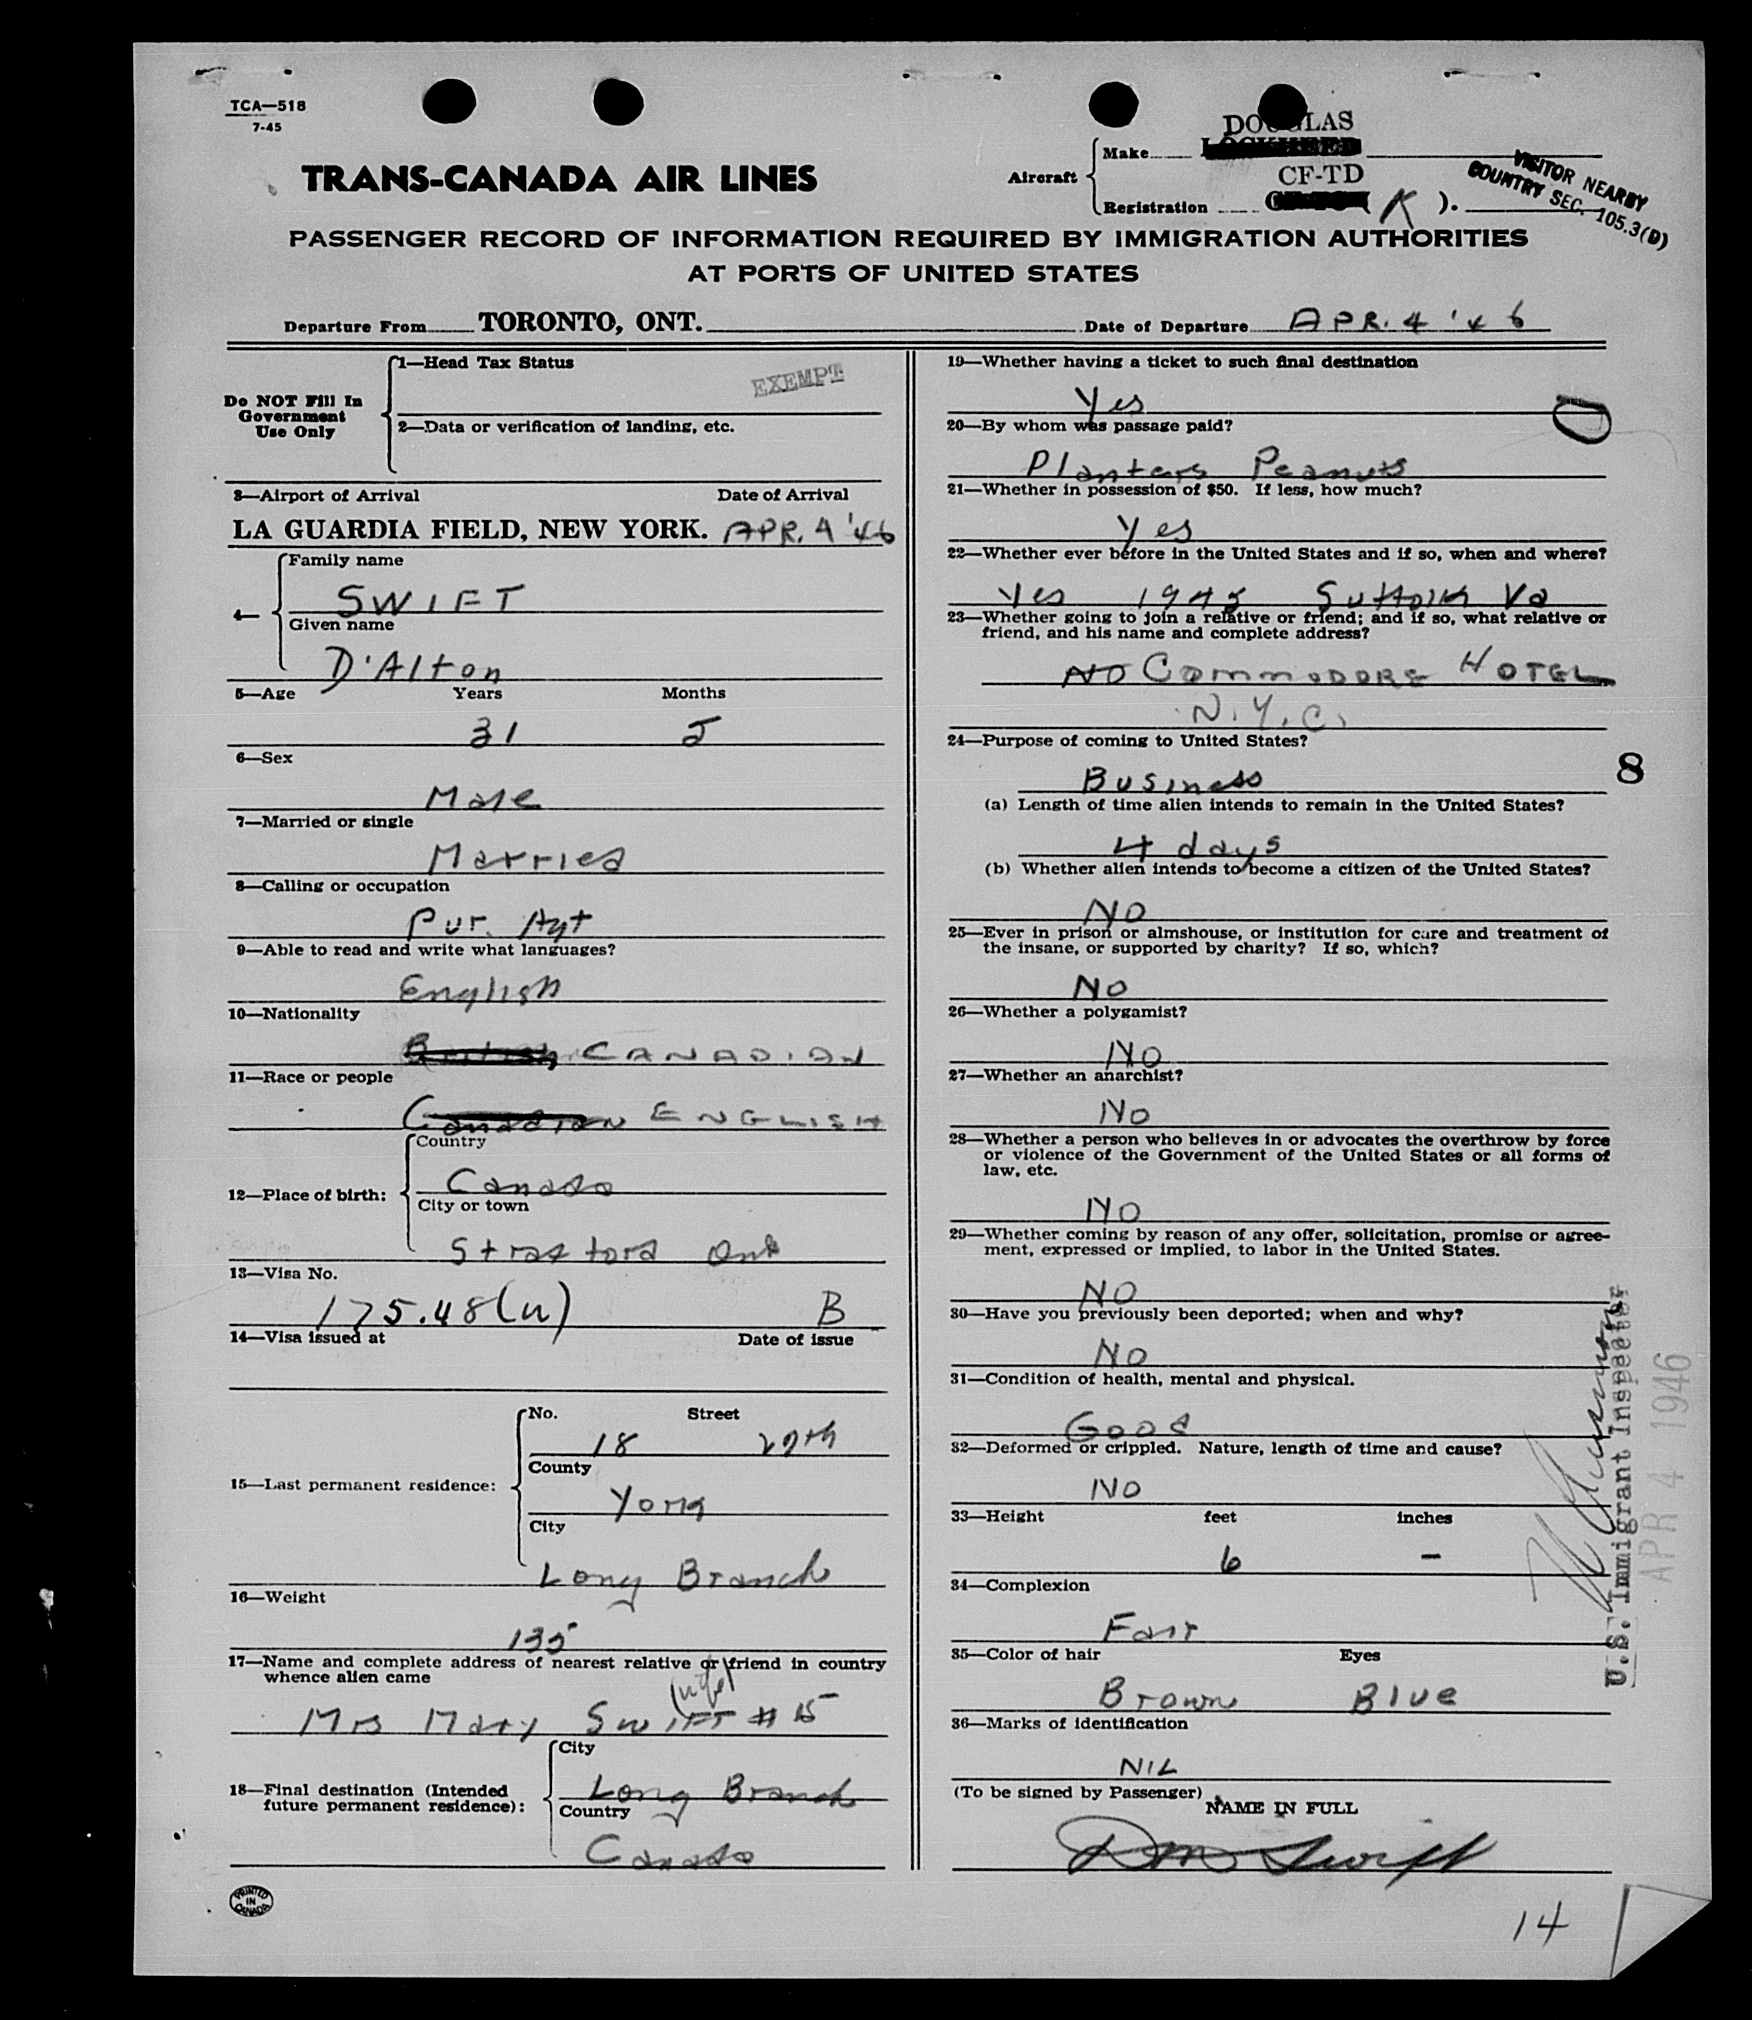 TCA—518
7-45
TRANS-CANADA AIR LINES
Aircraft
Make
DOUGLAS
LOCKHEED
CF-TD
Registration
K ).
VISITOR NEARBY
COUNTRY SEC. 105.3(D)
PASSENGER RECORD OF INFORMATION REQUIRED BY IMMIGRATION AUTHORITIES
AT PORTS OF UNITED STATES
Departure From TORONTO, ONT. Date of Departure APR. 4 '46
Do NOT Fill In
Government
Use Only
1—Head Tax Status
EXEMPT
2—Data or verification of landing, etc.
3—Airport of Arrival Date of Arrival
LA GUARDIA FIELD, NEW YORK. APR. 4 '46
4—
Family name
SWIFT
Given name
D'Alton
5—Age Years Months
31 5
6—Sex
Male
7—Married or single
Married
8—Calling or occupation
Pur. Agt
9—Able to read and write what languages?
English
10—Nationality
British CANADIAN
11—Race or people
Canadian ENGLISH
12—Place of birth:
Country
Canada
City or town
Stratford Ont
13—Visa No.
175.48(u) B
14—Visa issued at Date of issue
15—Last permanent residence:
No. Street
18 27th
County
York
City
Long Branch
16—Weight
135
17—Name and complete address of nearest relative or friend in country
whence alien came
(wife)
Mrs Mary Swift # 15
18—Final destination (Intended
future permanent residence):
City
Long Branch
Country
Canada
PRINTED
IN
CANADA
19—Whether having a ticket to such final destination
Yes
20—By whom was passage paid?
Planters Peanuts
21—Whether in possession of $50. If less, how much?
Yes
22—Whether ever before in the United States and if so, when and where?
Yes 1945 Suffolk Va
23—Whether going to join a relative or friend; and if so, what relative or
friend, and his name and complete address?
NO COMMODORE HOTEL
N.Y.C.
24—Purpose of coming to United States?
Business
8
(a) Length of time alien intends to remain in the United States?
4 days
(b) Whether alien intends to become a citizen of the United States?
NO
25—Ever in prison or almshouse, or institution for care and treatment of
the insane, or supported by charity? If so, which?
No
26—Whether a polygamist?
No
27—Whether an anarchist?
No
28—Whether a person who believes in or advocates the overthrow by force
or violence of the Government of the United States or all forms of
law, etc.
No
29—Whether coming by reason of any offer, solicitation, promise or agree-
ment, expressed or implied, to labor in the United States.
NO
30—Have you previously been deported; when and why?
No
31—Condition of health, mental and physical.
Good
32—Deformed or crippled. Nature, length of time and cause?
No
33—Height feet inches
6 —
34—Complexion
Fair
35—Color of hair Eyes
Brown Blue
36—Marks of identification
NIL
(To be signed by Passenger)
NAME IN FULL
DM Swift
U.S. Immigrant Inspector
APR 4 1946
14